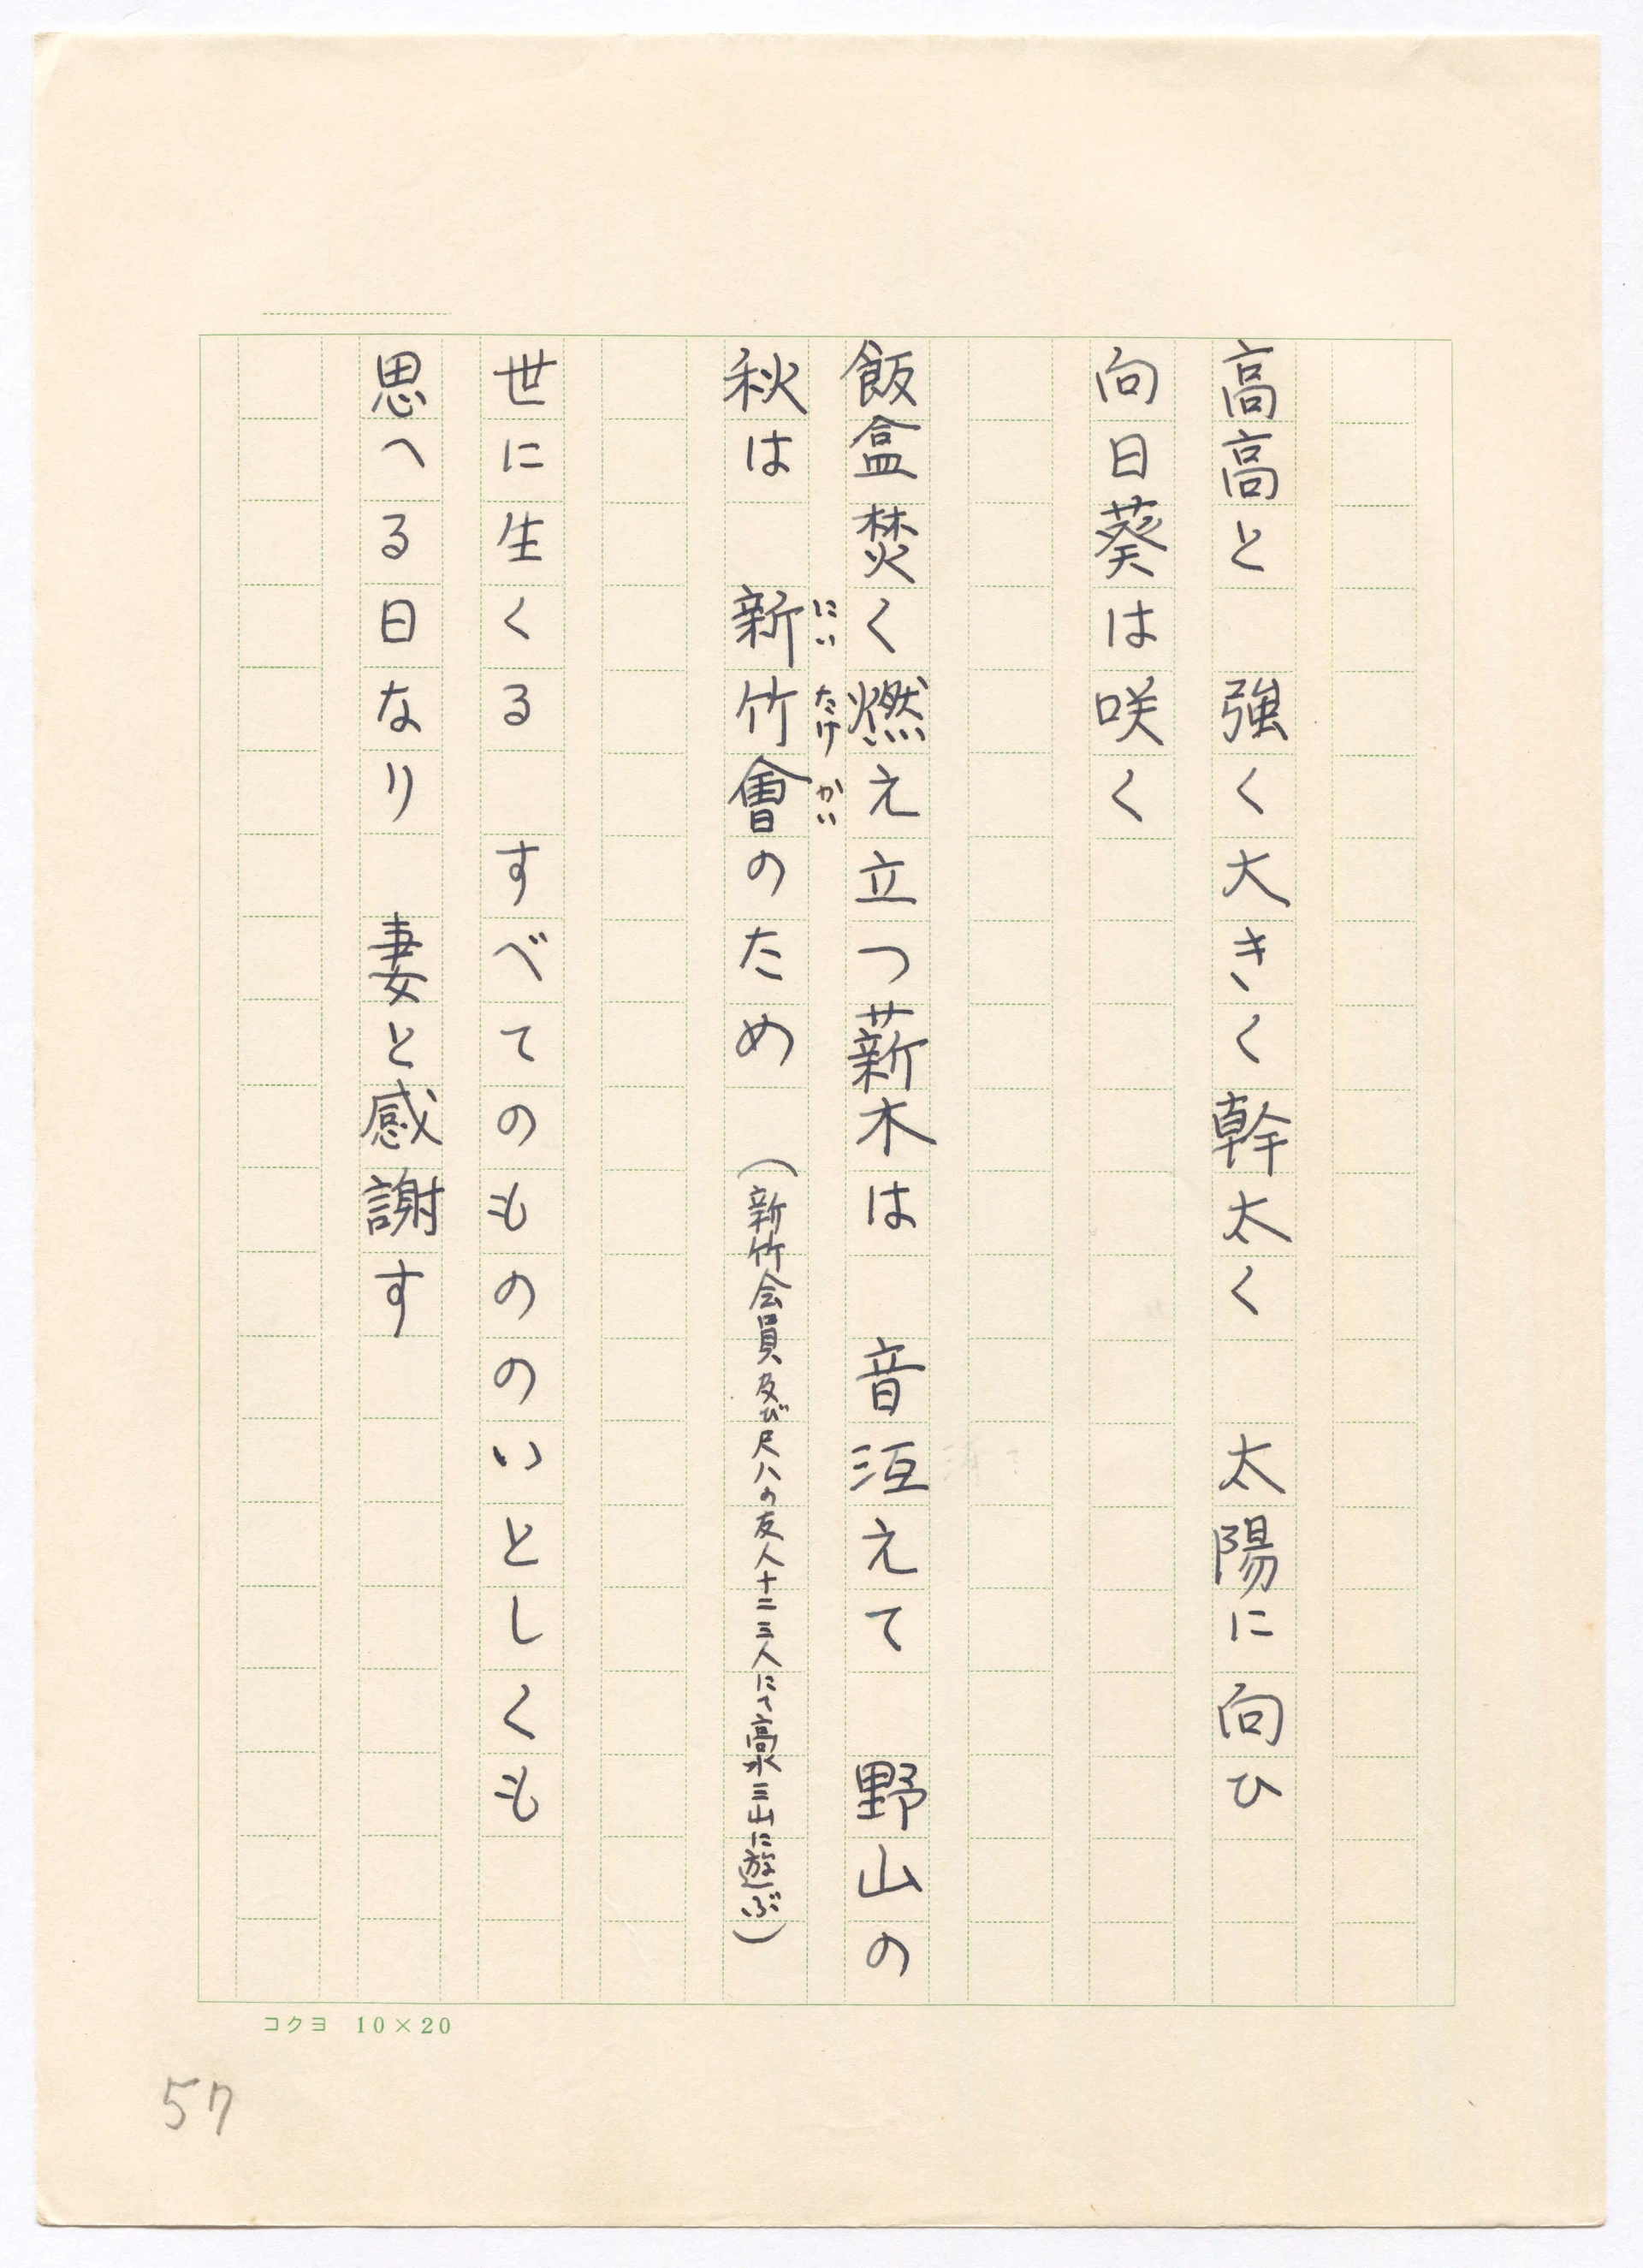 高高と　強く大きく幹太く　太陽に向ひ
向日葵は咲く
飯盒焚く燃え立つ薪木は　音冱えて　野山の
秋は　新竹會のため　（新竹会員及び尺八の友人十二三人にて高水三山に遊ぶ）
にいたけかい
世に生くる　すべてのもののいとしくも
思へる日なり　妻と感謝す
コクヨ　10×20
57